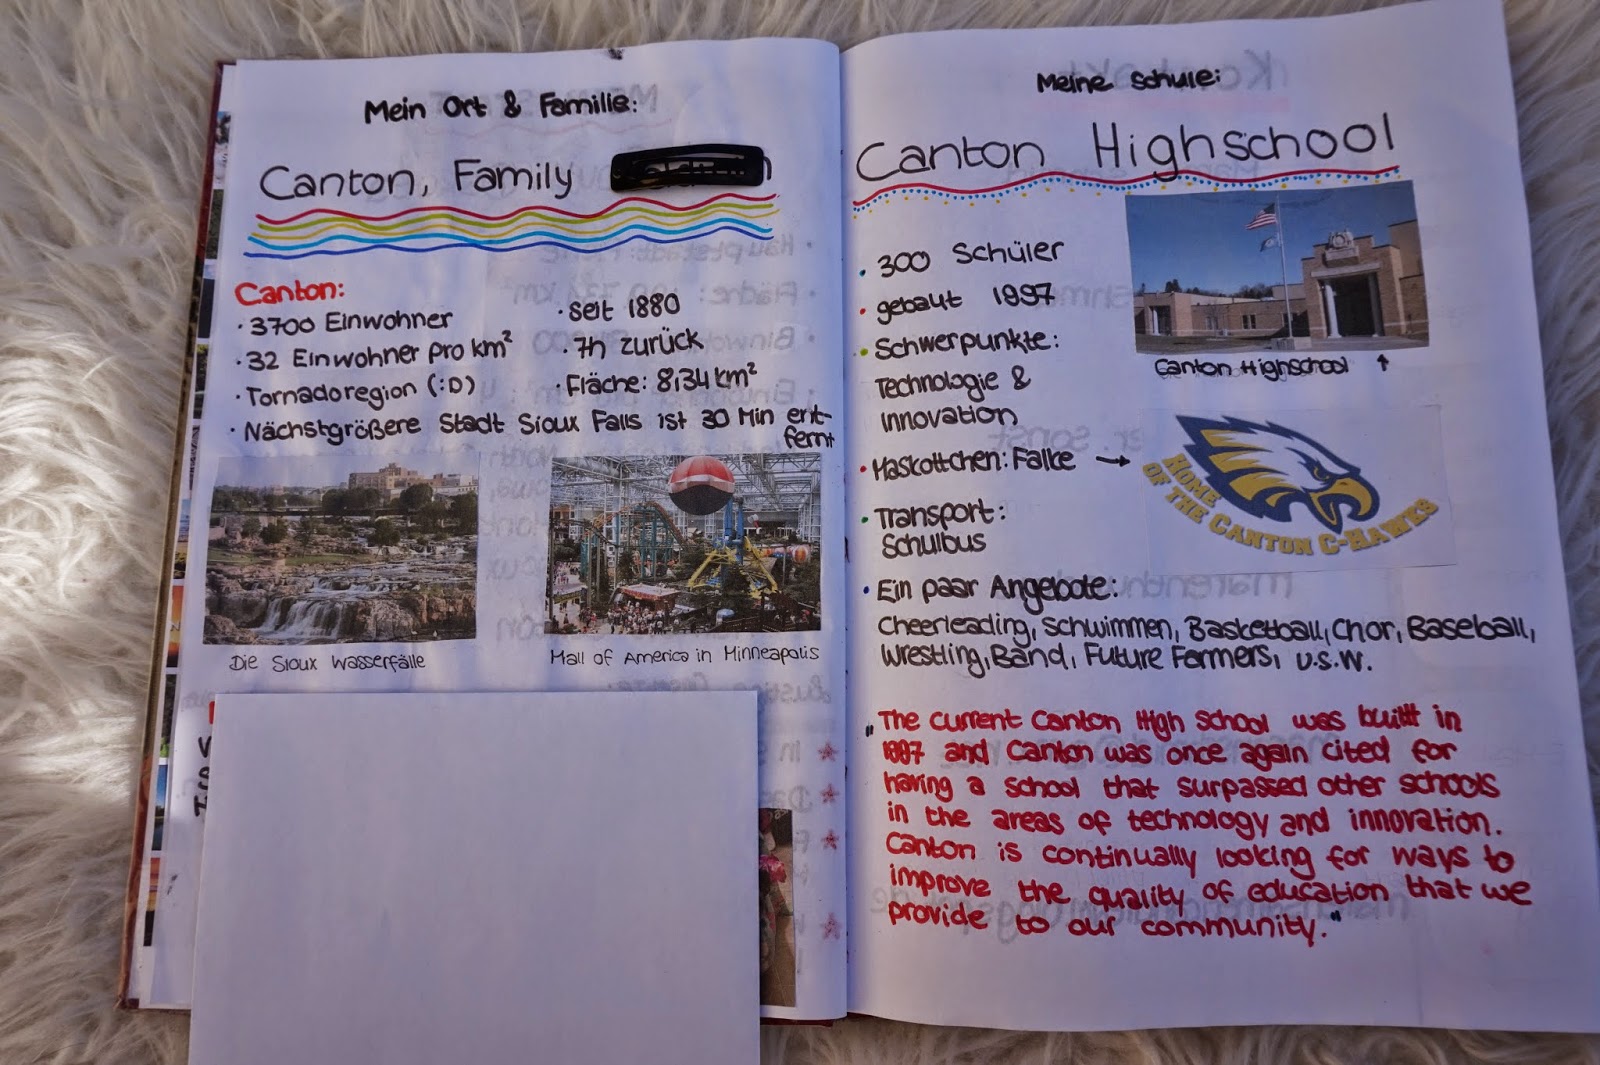 Mein Ort & Familie:
Canton, Family
Canton:
· 3700 Einwohner
· 32 Einwohner pro km²
· Tornadoregion (:D)
· seit 1880
· 7h zurück
· Fläche: 8,34 km²
· Nächstgrößere Stadt Sioux Falls ist 30 Min ent-
fernt
Die Sioux Wasserfälle
Mall of America in Minneapolis
Meine Schule:
Canton Highschool
· 300 Schüler
· gebaut 1997
· Schwerpunkte:
Technologie &
Innovation
· Maskottchen: Falke →
· Transport:
Schulbus
· Ein paar Angebote:
Cheerleading, Schwimmen, Basketball, Chor, Baseball,
Wrestling, Band, Future Farmers, u.s.w.
Canton Highschool ↑
HOME
OF THE CANTON C-HAWKS
"The current Canton High School was built in
1997 and Canton was once again cited for
having a school that surpassed other schools
in the areas of technology and innovation.
Canton is continually looking for ways to
improve the quality of education that we
provide to our community."